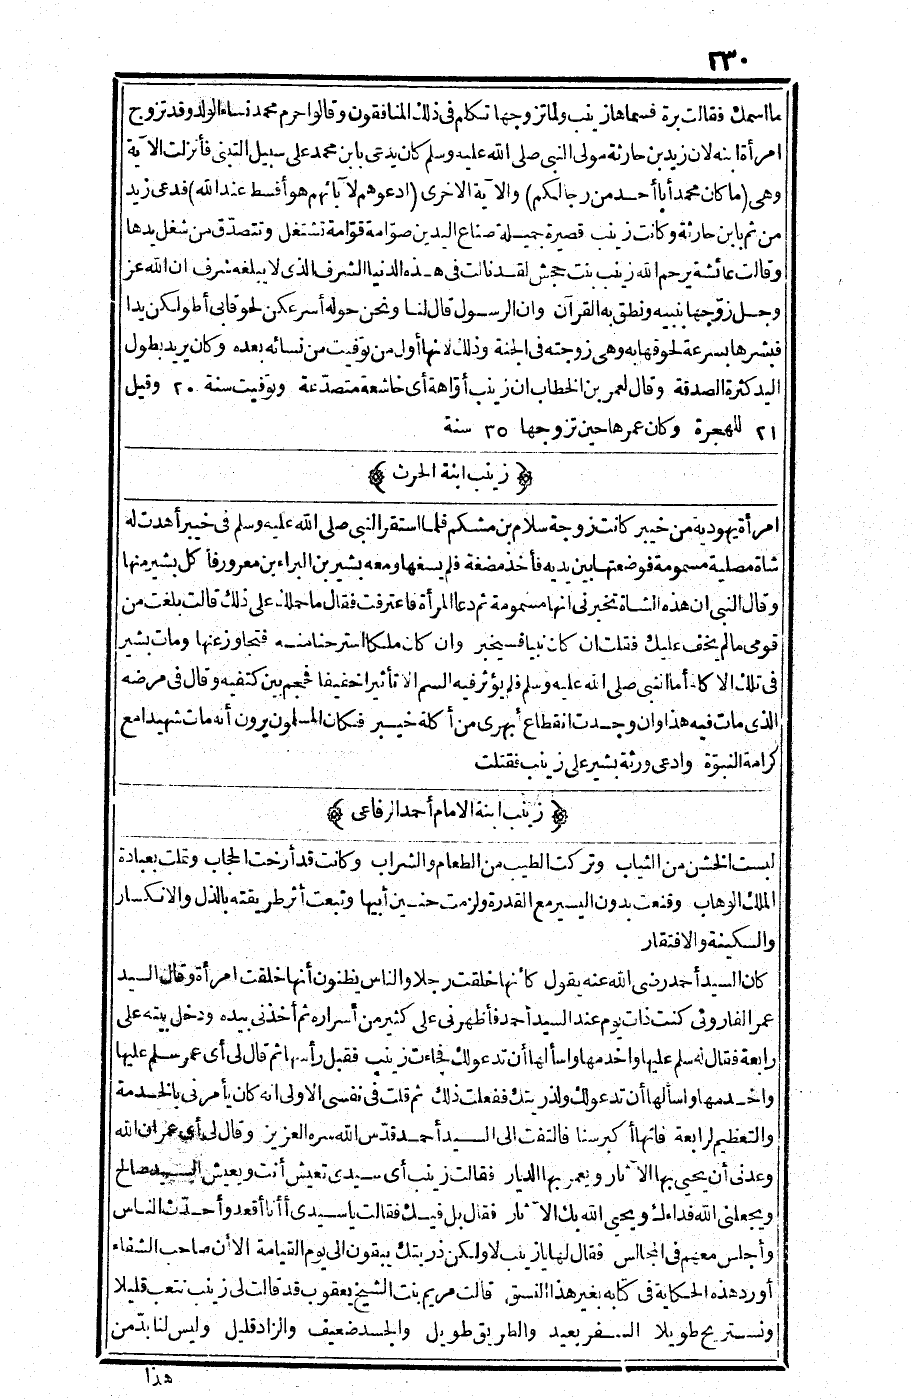 ٢٣٠
ما اسمك فقالت برة فسماها زينب ولما تزوجها تكلم في ذلك المنافقون وقالوا حرم محمد نساء الولد وقد تزوج
امرأة ابنه لان زيد بن حارثة مولى النبي صلى الله عليه وسلم كان يدعى بابن محمد على سبيل التبني فأنزلت الآية
وهي (ما كان محمد أبا أحد من رجالكم) والآية الاخرى (ادعوهم لآبائهم هو أقسط عند الله) فدعى زيد
من ثم بابن حارثة وكانت زينب قصيرة جميلة صناع اليدين صوّامة قوّامة تشتغل وتتصدّق من شغل يدها
وقالت عائشة يرحم الله زينب بنت جحش لقد نالت في هذه الدنيا الشرف الذي لا يبلغه شرف ان الله عز
وجل زوّجها بنبيه ونطق به القرآن وان الرسول قال لنا ونحن حوله أسرعكن لحوقا بي أطولكن يدا
فبشرها بسرعة لحوقها به وهي زوجته في الجنة وذلك لانها أول من توفيت من نسائه بعده وكان يريد بطول
اليد كثرة الصدقة وقال لعمر بن الخطاب ان زينب أوّاهة أي خاشعة متصدّعة وتوفيت سنة ٢٠ وقيل
٢١ للهجرة وكان عمرها حين تزوجها ٣٥ سنة
﴿زينب ابنة الحرث﴾
امرأة يهودية من خيبر كانت زوجة سلام بن مشكم فلما استقر النبي صلى الله عليه وسلم في خيبر أهدت له
شاة مصلية مسمومة فوضعتها بين يديه فأخذ مضغة فلم يسغها ومعه بشير بن البراء بن معرور فأكل بشير منها
وقال النبي ان هذه الشاة تخبرني انها مسمومة ثم دعا المرأة فاعترفت فقال ما حملك على ذلك قالت بلغت من
قومي ما لم يخف عليك فقلت ان كان نبيا فسيخبر وان كان ملكا استرحنا منه فتجاوز عنها ومات بشير
في تلك الاكلة أما النبي صلى الله عليه وسلم فلم يؤثر فيه السم الا تأثيرا خفيفا فحجم بين كتفيه وقال في مرضه
الذي مات فيه هذا وان وجدت انقطاع أبهري من أكلة خيبر فكان المسلمون يرون أنه مات شهيدا مع
كرامة النبوّة وادعى ورثة بشير على زينب فقتلت
﴿زينب ابنة الامام أحمد الرفاعي﴾
لبست الخشن من الثياب وتركت الطيب من الطعام والشراب وكانت قد أرخت الحجاب وتملت بعبادة
الملك الوهاب وقنعت بدون اليسير مع القدرة ولزمت حنين أبيها وتبعت أثر طريقته بالذل والانكسار
والسكينة والافتقار
كان السيد أحمد رضي الله عنه يقول كأنها خلقت رجلا والناس يظنون أنها خلقت امرأة وقال السيد
عمر الفاروثي كنت ذات يوم عند السيد أحمد فأظهرني على كثير من أسراره ثم أخذني بيده ودخل بيته على
رابعة فقال له سلم عليها واخدمها واسألها أن تدعو لك فجاءت زينب فقبل رأسها ثم قال لي أي عمر سلم عليها
واخدمها واسألها أن تدعو لك ولذريتك ففعلت ذلك ثم قلت في نفسي الاولى انه كان يأمرني بالخدمة
والتعظيم لرابعة فانها أكبر سنا فالتفت الى السيد أحمد قدّس الله سره العزيز وقال لي أي عمر ان الله
وعدني أن يحيي بها الآثار ويعمر بها الديار فقالت زينب أي سيدي تعيش أنت ويعيش السيد صالح
ويجعلني الله فداءك ويحيي الله بك الآثار فقال بل فيك فقالت يا سيدي أأنا أقعد وأحدّث الناس
وأجلس معهم في المجالس فقال لها يا زينب لا ولكن ذريتك يبقون الى يوم القيامة الا أن صاحب الشفاء
أورد هذه الحكاية في كتابه بغير هذا النسق قالت مريم بنت الشيخ يعقوب قد قالت لي زينب نتعب قليلا
ونستريح طويلا السفر بعيد والطريق طويل والجسد ضعيف والزاد قليل وليس لنا بدّ من
هذا